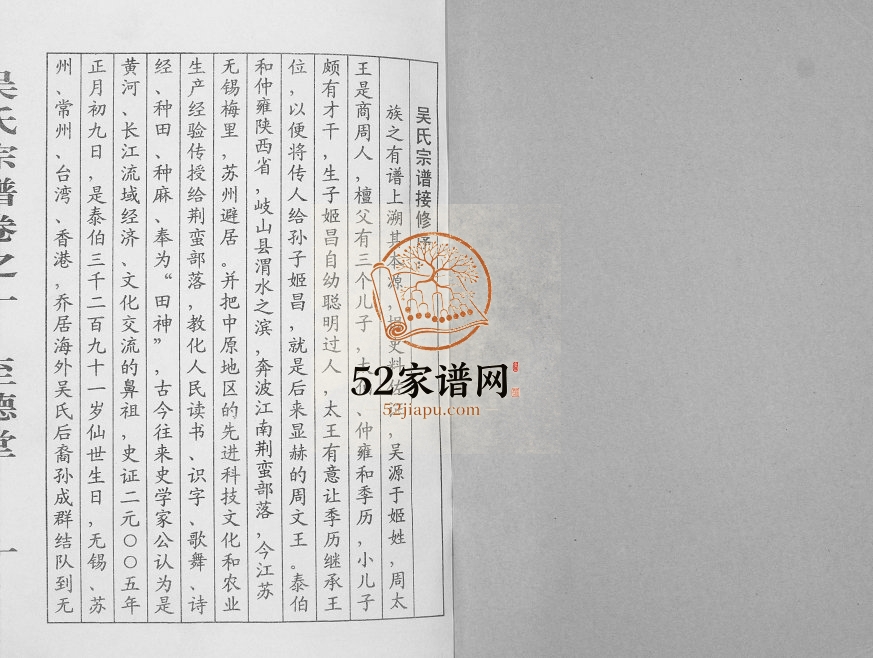 吴氏宗谱接修序
族之有谱上溯其本源，据史料，吴源于姬姓，周太
王是商周人，檀父有三个儿子，、仲雍和季历，小儿子
颇有才干，生子姬昌自幼聪明过人，太王有意让季历继承王
位，以便将传人给孙子姬昌，就是后来显赫的周文王。泰伯
和仲雍陕西省，岐山县渭水之滨，奔波江南荆蛮部落，今江苏
无锡梅里，苏州避居。并把中原地区的先进科技文化和农业
生产经验传授给荆蛮部落，教化人民读书、识字、歌舞、诗
经、种田、种麻、奉为“田神”，古今往来史学家公认为是
黄河、长江流域经济、文化交流的鼻祖，史证二元〇〇五年
正月初九日，是泰伯三千二百九十一岁仙世生日，无锡、苏
州、常州、台湾、香港，乔居海外吴氏后裔孙成群结队到无
吴氏宗谱卷之一 至德堂 一
52家谱网
52jiapu.com